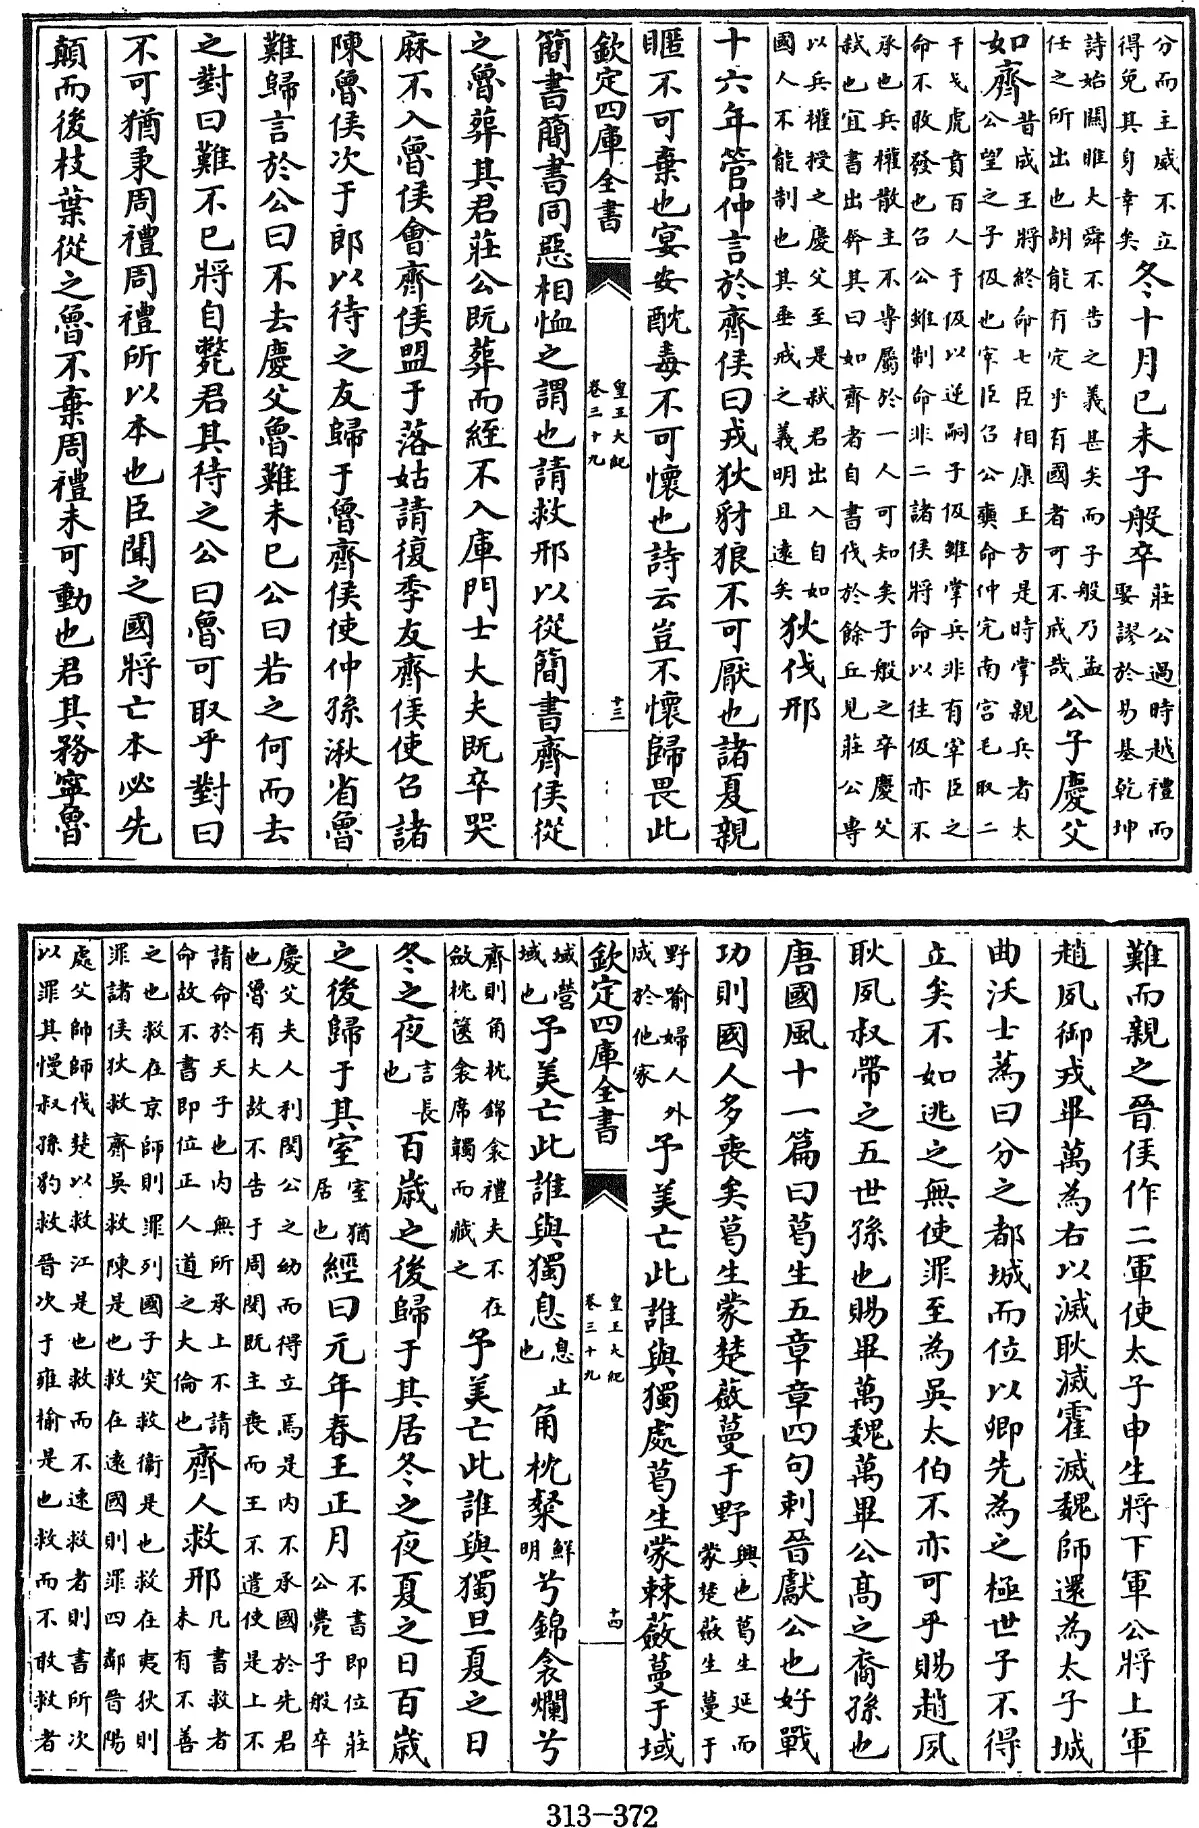 分而主威不立
得免其身幸矣
冬十月己未子般卒
莊公過時越禮而
娶謬於易基乾坤
詩始關雎大舜不告之義甚矣而子般乃孟
任之所出也胡能有定乎有國者可不戒哉
公子慶父
如齊
昔成王將終命七臣相康王方是時掌親兵者太
公望之子伋也宰臣召公奭命仲完南宮毛取二
干戈虎賁百人于伋以逆嗣子伋雖掌兵非有宰臣之
命不敢發也召公雖制命非二諸侯將命以往伋亦不
承也兵權散主不専屬於一人可知矣子般之卒慶父
弑也宜書出奔其曰如齊者自書伐於餘丘見莊公専
以兵權授之慶父至是弑君出入自如
國人不能制也其垂戒之義明且遠矣
狄伐邢
十六年管仲言於齊侯曰戎狄豺狼不可厭也諸夏親
暱不可棄也宴安酖毒不可懷也詩云豈不懷歸畏此
欽定四庫全書
皇王大紀
卷三十九
十三
簡書簡書同惡相恤之謂也請救邢以從簡書齊侯從
之魯葬其君莊公既葬而絰不入庫門士大夫既卒哭
麻不入魯侯會齊侯盟于落姑請復季友齊侯使召諸
陳魯侯次于郎以待之友歸于魯齊侯使仲孫湫省魯
難歸言於公曰不去慶父魯難未已公曰若之何而去
之對曰難不已將自斃君其待之公曰魯可取乎對曰
不可猶秉周禮周禮所以本也臣聞之國將亡本必先
顛而後枝葉從之魯不棄周禮未可動也君其務寧魯
難而親之晉侯作二軍使太子申生將下軍公將上軍
趙夙御戎畢萬為右以滅耿滅霍滅魏師還為太子城
曲沃士蒍曰分之都城而位以卿先為之極世子不得
立矣不如逃之無使罪至為吳太伯不亦可乎賜趙夙
耿夙叔帶之五世孫也賜畢萬魏萬畢公高之裔孫也
唐國風十一篇曰葛生五章章四句刺晉獻公也好戰
功則國人多喪矣葛生蒙楚蘞蔓于野
興也葛生延而
蒙楚蘞生蔓于
野喻婦人外
成於他家
予美亡此誰與獨處葛生蒙棘蘞蔓于域
欽定四庫全書
皇王大紀
卷三十九
十四
域營
域也
予美亡此誰與獨息
息止
也
角枕粲
鮮
明
兮錦衾爛兮
齊則角枕錦衾禮夫不在
斂枕篋衾席韣而藏之
予美亡此誰與獨旦夏之日
冬之夜
言長
也
百歲之後歸于其居冬之夜夏之日百歲
之後歸于其室
室猶
居也
經曰元年春王正月
不書即位莊
公薨子般卒
慶父夫人利閔公之幼而得立焉是内不承國於先君
也魯有大故不告于周閔既主喪而王不遣使是上不
請命於天子也内無所承上不請
命故不書即位正人道之大倫也
齊人救邢
凡書救者
未有不善
之也救在京師則罪列國子突救衞是也救在夷狄則
罪諸侯狄救齊吳救陳是也救在遠國則罪四鄰晉陽
處父帥師伐楚以救江是也救而不速救者則書所次
以罪其慢叔孫豹救晉次于雍揄是也救而不敢救者
313－372